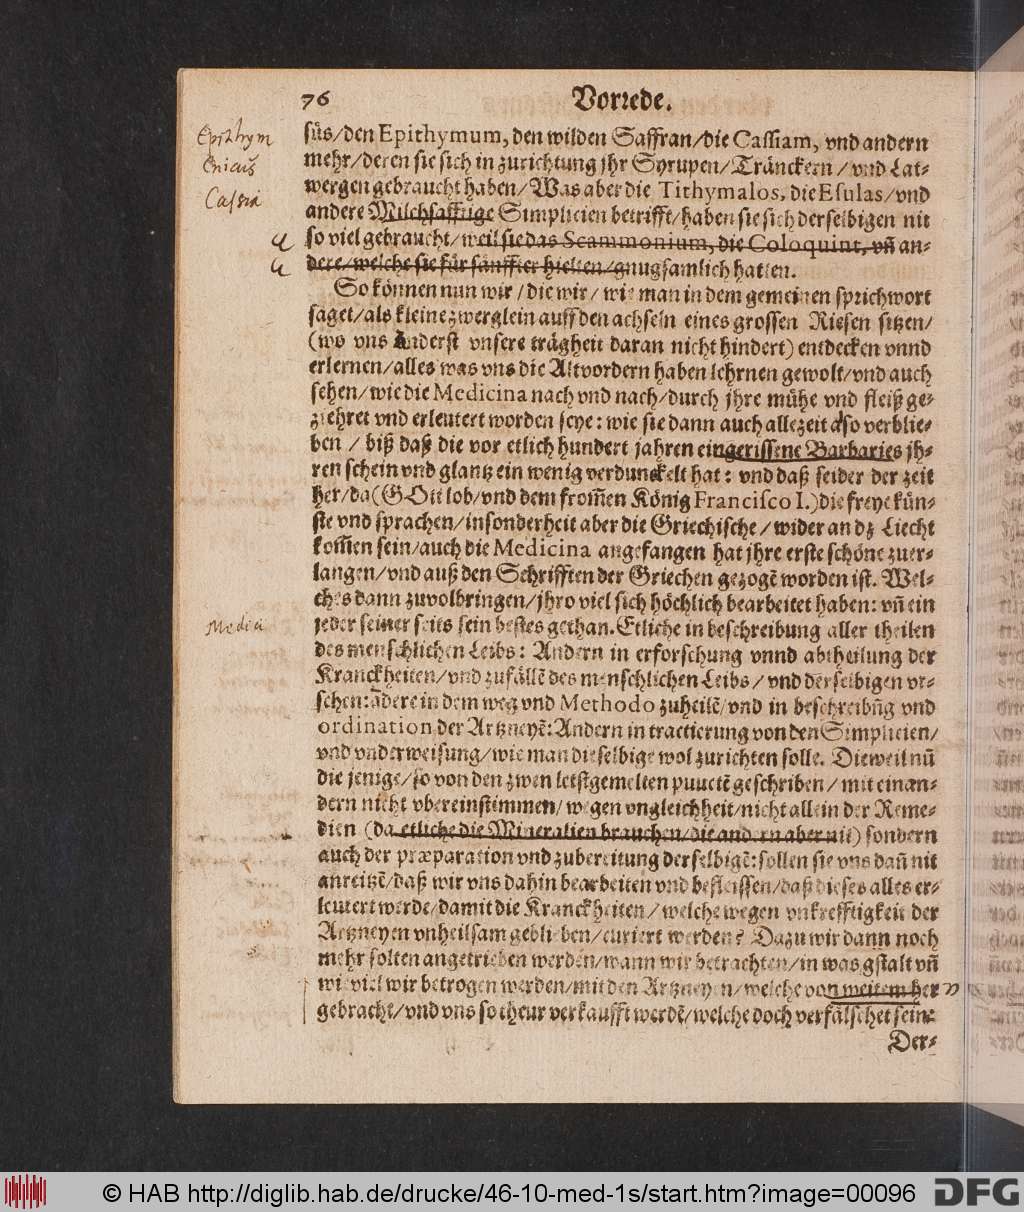 76 Vorrede.
Epithym
Cnicus
Cassia
süs/den Epithymum, den wilden Saffran/die Cassiam, vnd andern
mehr/deren sie sich in zurichtung jhr Syrupen/Tränckern/vnd Lat-
wergen gebraucht haben/Was aber die Tithymalos, die Esulas/vnd
andere Milchsafftige Simplicien betrifft/haben sie sich derselbigen nit
so viel gebraucht/weil sie das Scammonium, die Coloquint, vn̄ an-
dere/welche sie für sanffter hielten/gnugsamlich hatten.
So können nun wir/die wir/wie man in dem gemeinen sprichwort
saget/als kleine zwerglein auff den achseln eines grossen Riesen sitzen/
(wo vns anderst vnsere trägheit daran nicht hindert) entdecken vnnd
erlernen/alles was vns die Altvordern haben lehrnen gewolt/vnd auch
sehen/wie die Medicina nach vnd nach/durch jhre mühe vnd fleiß ge-
ziehret vnd erleutert worden seye: wie sie dann auch allezeit also verblie-
ben/biß daß die vor etlich hundert jahren eingerissene Barbaries jh-
ren schein vnd glantz ein wenig verdunckelt hat: vnd daß seider der zeit
her/da (GOtt lob/vnd dem from̄en König Francisco I.) die freye kün-
ste vnd sprachen/insonderheit aber die Griechische/wider an dz Liecht
kom̄en sein/auch die Medicina angefangen hat jhre erste schöne zuer-
langen/vnd auß den Schrifften der Griechen gezogē worden ist. Wel-
ches dann zuvolbringen/jhro viel sich höchlich bearbeitet haben: vn̄ ein
Medici
jeder seiner seits sein bestes gethan. Etliche in beschreibung aller theilen
des menschlichen Leibs: Andern in erforschung vnnd abtheilung der
Kranckheiten/vnd zufällē des menschlichen Leibs/vnd derselbigen vr-
sachen: ādere in dem weg vnd Methodo zuheilē/vnd in beschreibūg vnd
ordination der Artzneyē: Andern in tractierung von den Simplicien/
vnd vnderweisung/wie man dieselbige wol zurichten solle. Dieweil nū
die jenige/so von den zwen letstgemelten puuctē geschriben/mit einan-
dern nicht vbereinstimmen/wegen vngleichheit/nicht allein der Reme-
dien (da etliche die Mineralien brauchen/die andern aber nit) sondern
auch der præparation vnd zubereitung derselbigē: sollen sie vns dañ nit
anreitzē/daß wir vns dahin bearbeiten vnd befleissen/daß dieses alles er-
leutert werde/damit die Kranckheiten/welche wegen vnkrefftigkeit der
Artzneyen vnheilsam geblieben/curiert werden? Dazu wir dann noch
mehr solten angetrieben werden/wann wir betrachten/in was gstalt vn̄
wieviel wir betrogen werden/mit den Artzneyen/welche von weitem her
gebracht/vnd vns so theur verkaufft werdē/welche doch verfälschet sein:
Der-
© HAB http://diglib.hab.de/drucke/46-10-med-1s/start.htm?image=00096
DFG